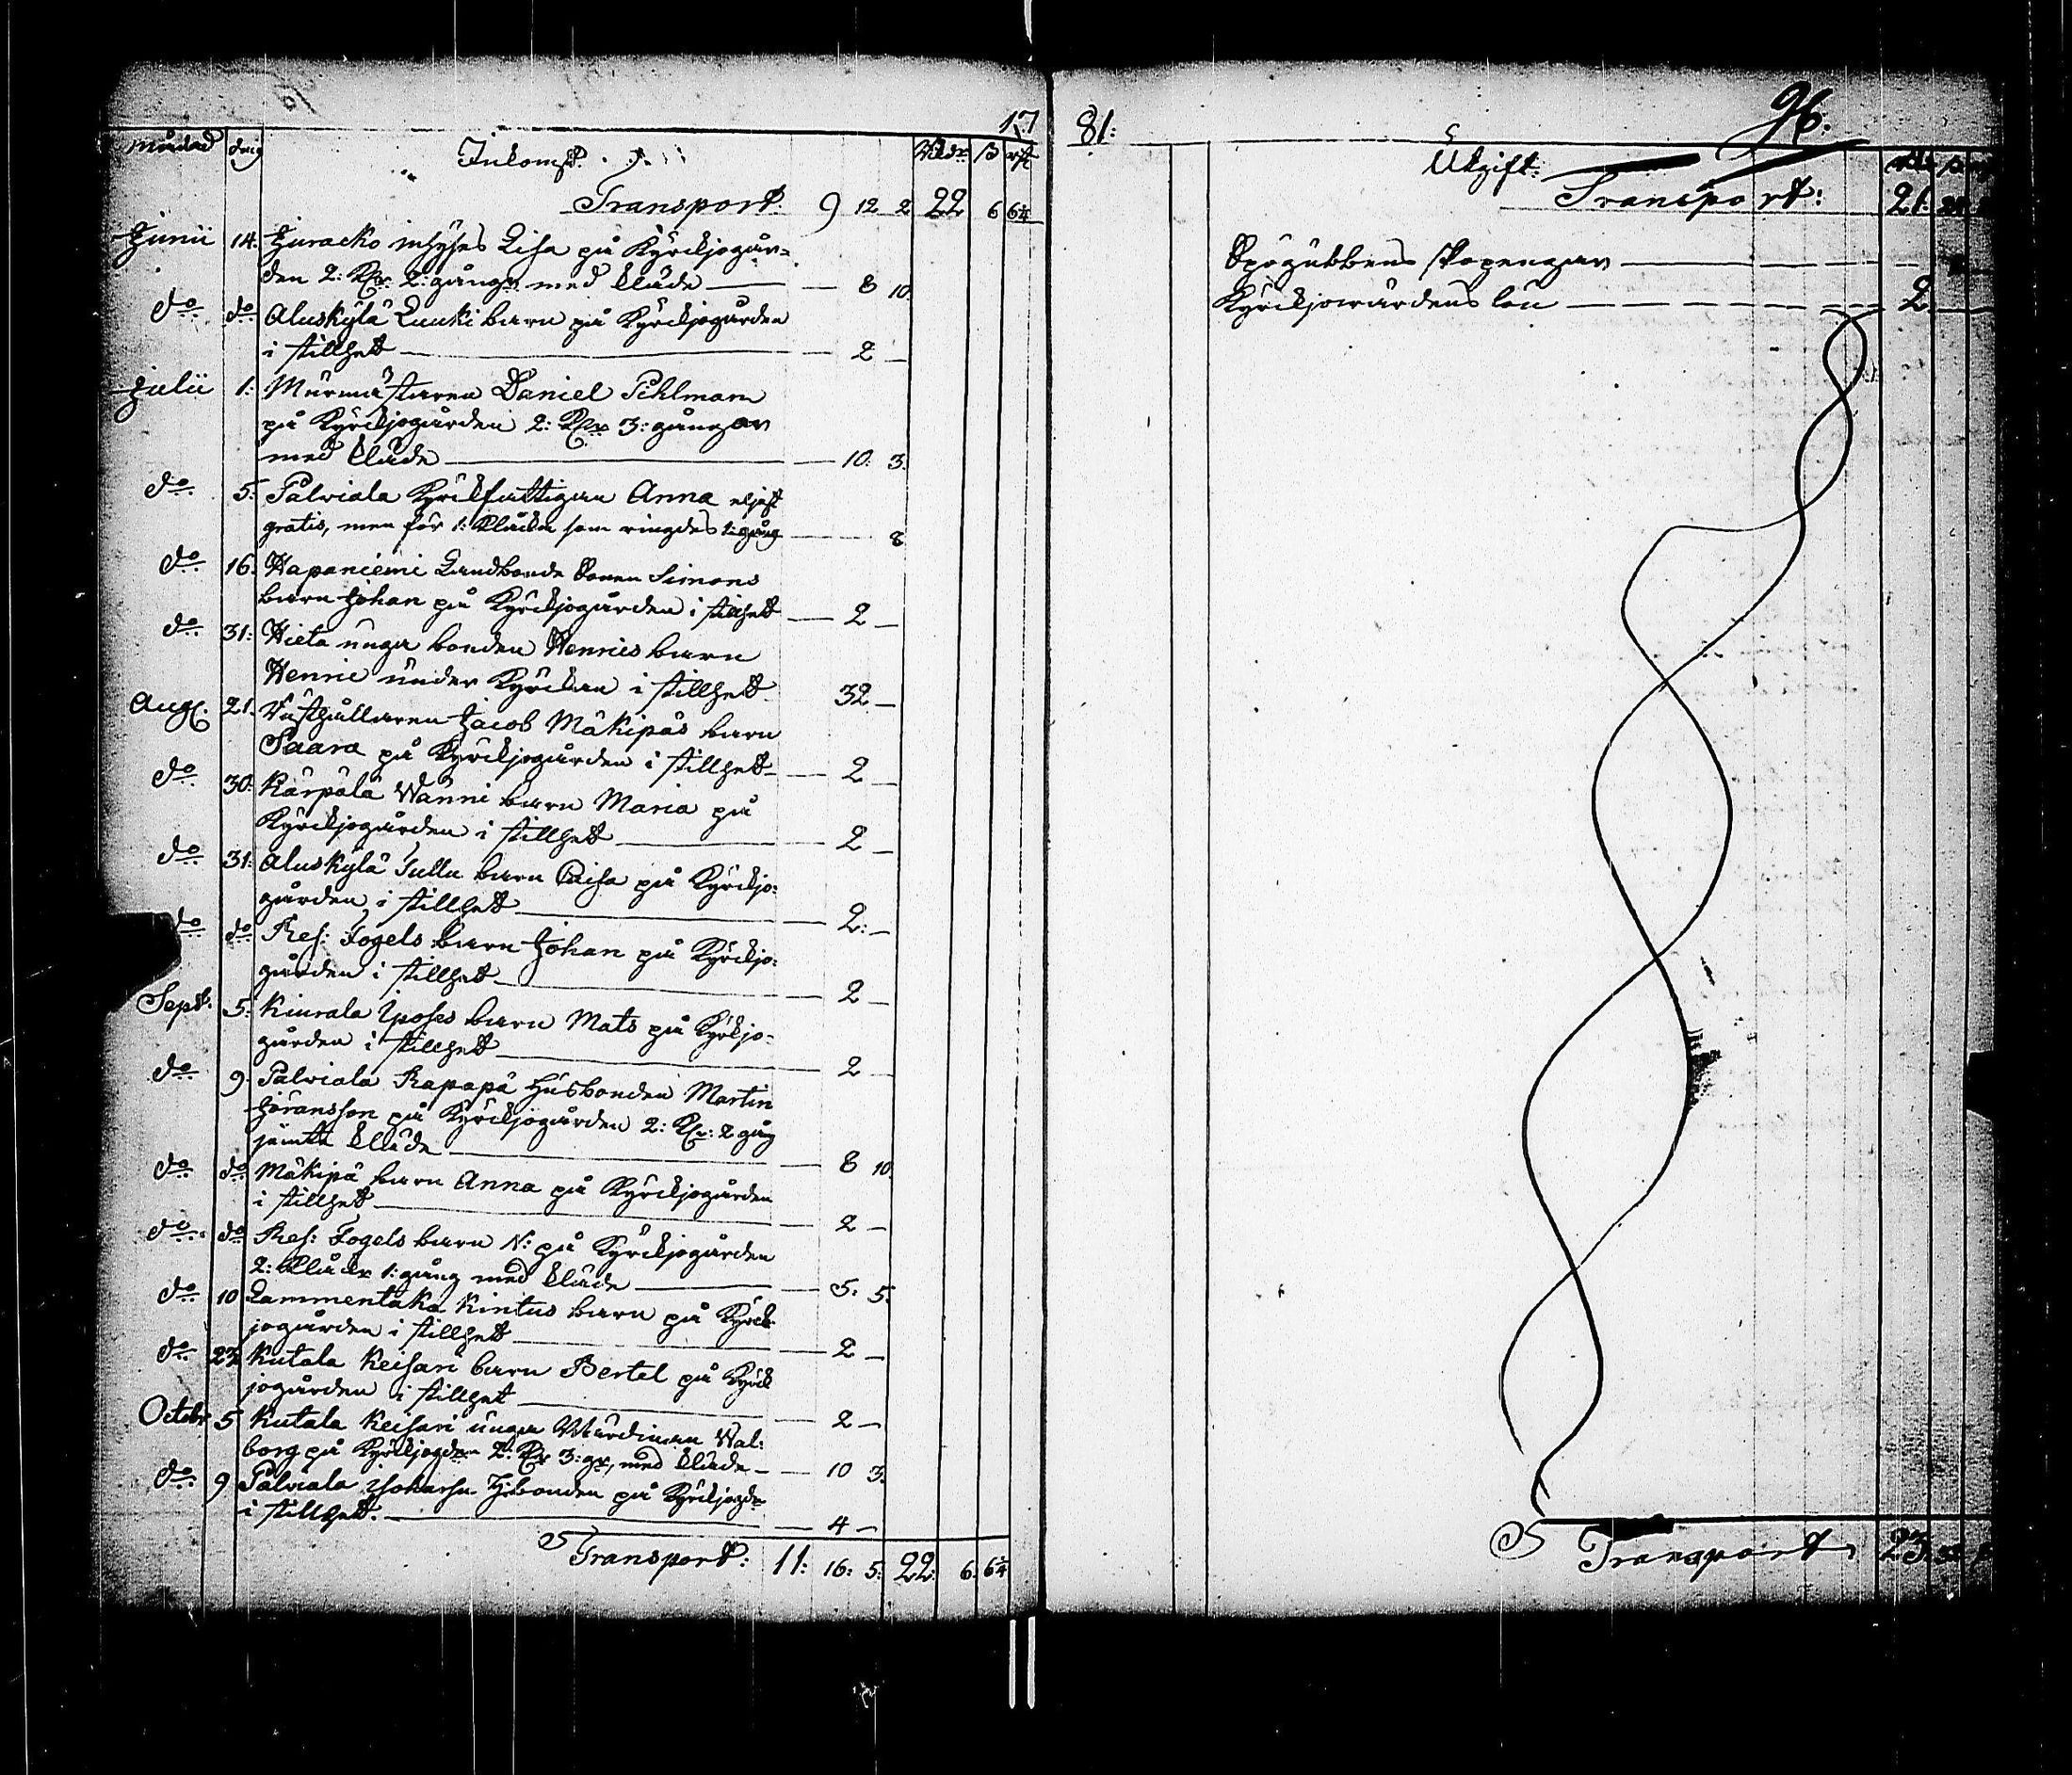 17
månad dag Inkomst. Rikdr ß rst
Transport 9 12 2 22 6 6¼
Junii 14. Juracko inhyses Lisa på Kyrckjogår-
den 2: Kr 2: gånger med kläde — 8 10.
do do Aluskylä Luuki barn på Kyrckjogården
i stillhet — 2 —
Julii 1: Murmästaren Daniel Pihlman
på Kyrckjogården 2: Kr 3: gångor
med kläde — 10: 3.
do 5: Palviala Kyrckfattigan Anna eljest
gratis, men för 1: klåcka som ringdes 1: gång — 8.
do 16. Hapaniemi Landbonde Sonen Simons
barn Johan på Kyrckjogården i stillhet — 2 —
do 31: Hieta unga bonden Henrics barn
Henric under Kyrckan i stillhet 32 —
Aug. 21. Jacob Mäkipäs barn
Saara på Kyrckjogården i stillhet — 2 —
do 30: Kärpälä Wänni barn Maria på
Kyrckjogården i stillhet — 2 —
do 31: Aluskylä Tullu barn Caisa på Kyrckjo:
gården i stillhet — 2: —
do do Ref: Fogels barn Johan på Kyrckjo:
gården i stillhet — 2 —
Septb. 5: Kiurala barn Mats på Kyrckjo-
gården i stillhet — 2 —
do 9. Palviala Rapapä Husbonden Martin
Göransson på Kyrckjogården 2: Kr: 2 gång
jämte kläde — 8 10.
do do Mäkipä barn Anna på Kyrckjogården
i stillhet — 2 —
do do Ref: Fogels barn N: på Kyrckjogården
2: klåckr 1: gång med kläde — 5. 5.
do 10 Lammentaka Kintus barn på Kyrck
jogården i stillhet — 2 —
do 23 Kutala Keisari barn Bertel på Kyrck
jogården i stillhet — 2 —
Octobr 5 Kutala Keisari unga Wärdinnan Wal:
borg på Kyrckjogdn 2: Kr 3: gr, med kläde — 10 3.
do 9 Palviala Husbonden på Kyrckjogdn
i stillhet. — 4 —
Transport: 11: 16: 5: 22: 6. 6¼
81: 96.
Utgift:
Transport: 21:
Spögubbens skopengar —
Kyrckjowärdens lön — 2 —
Transport 23.